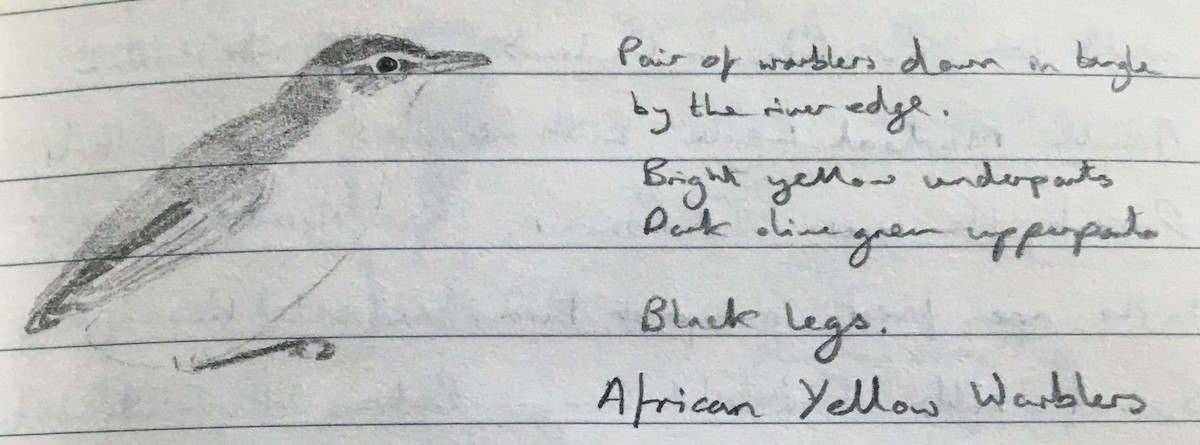 Pair of warblers down in tangle
by the river edge.
Bright yellow underparts
Dark olive green upperparts
Black legs.
African Yellow Warblers